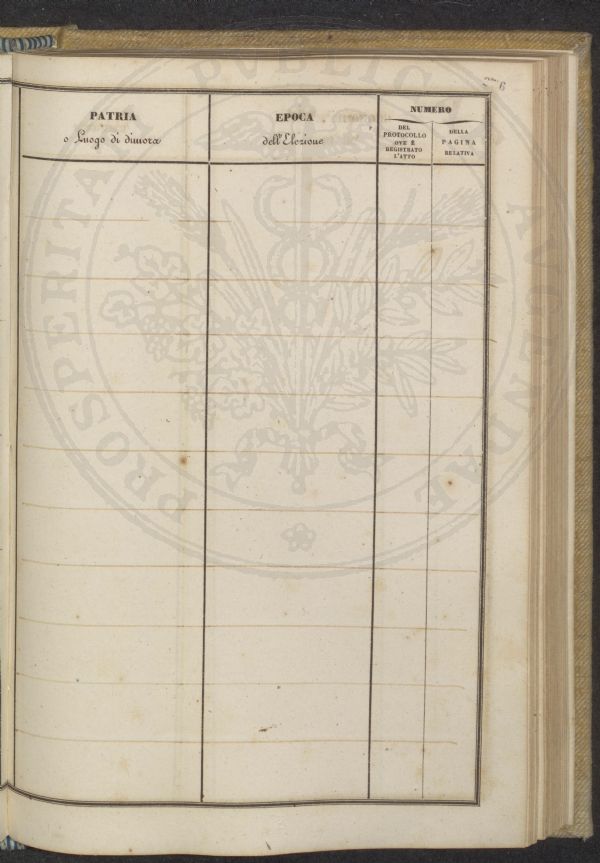 6
PATRIA
o Luogo di dimora
EPOCA
dell'Elezione
NUMERO
DEL
PROTOCOLLO
OVE È
REGISTRATO
L'ATTO
DELLA
PAGINA
RELATIVA
PROSPERITATI PUBLICAE AUGENDAE